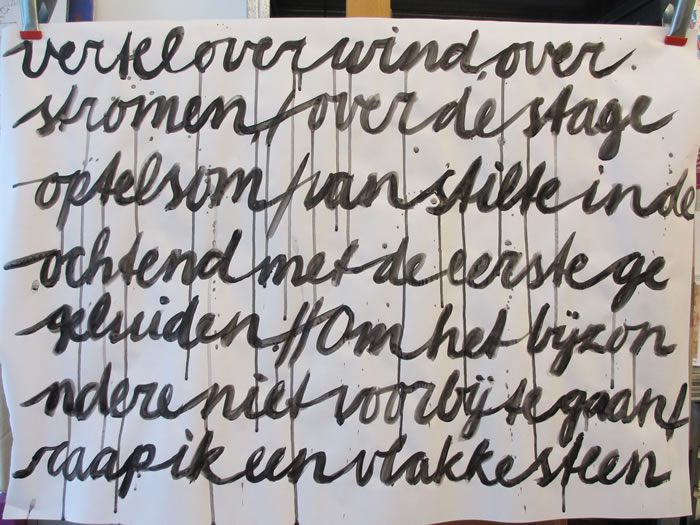 vertel over wind over
stromen / over de stage
optelsom / van stilte in de
ochtend met de eerste ge
geluiden // Om het bijzon
ndere niet voorbij te gaan /
raap ik een vlakke steen